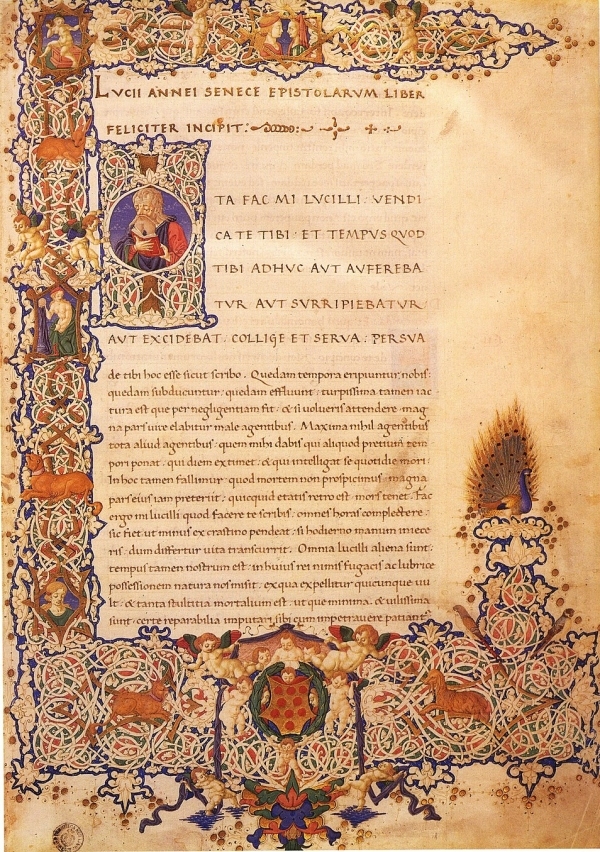 LVCII ANNEI SENECE EPISTOLARVM LIBER
FELICITER INCIPIT:
TA FAC MI LVCILLI VENDI
CA TE TIBI ET TEMPVS QVOD
TIBI ADHVC AVT AVFEREBA
TVR AVT SVRRIPIEBATVR
AVT EXCIDEBAT. COLLIGE ET SERVA: PERSVA
de tibi hoc esse sicut scribo. Quedam tempora eripiuntur nobis:
quedam subducuntur: quedam effluunt: turpissima tamen iac
tura est que per negligentiam fit: & si uolueris attendere: mag
na pars uite elabitur male agentibus. Maxima nihil agentibus
tota aliud agentibus: quem mihi dabis qui aliquod pretium tem
pori ponat: qui diem extimet: & qui intelligat se quotidie mori:
In hoc tamen fallimur: quod mortem non prospicimus: magna
pars eius iam preteriit: quicquid etatis retro est: mors tenet. Fac
ergo mi lucilli quod facere te scribis: omnes horas complectere:
sic fiet ut minus ex crastino pendeat: si hodierno manum iniece
ris: dum differtur uita transcurrit. Omnia lucilli aliena sunt:
tempus tamen nostrum est: in huius rei nimis fugacis ac lubrice
possessionem natura nos misit: ex qua expellitur quicunque uu
lt: & tanta stultitia mortalium est: ut que minima & uilissima
sunt: certe reparabilia imputari sibi cum impetrauere patiant